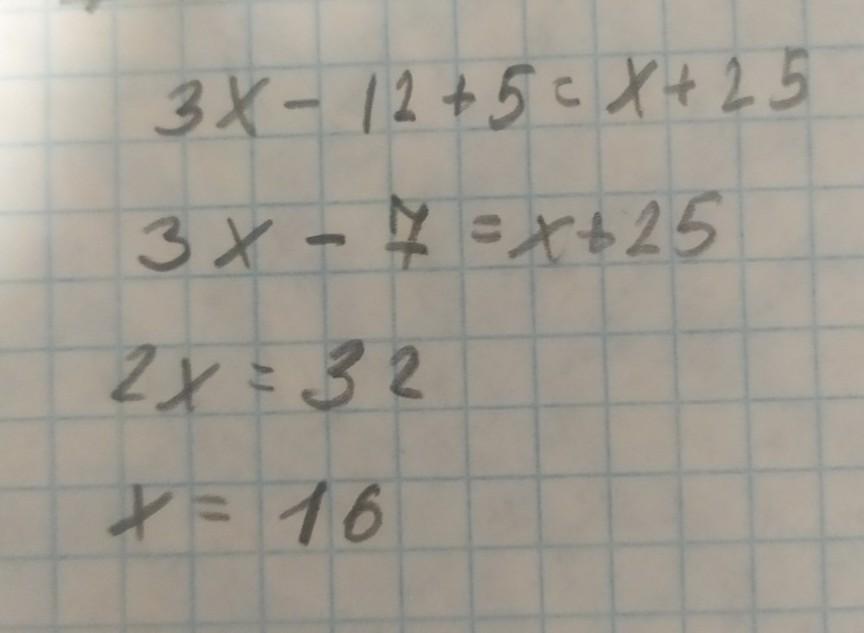 3x - 12 + 5 = x + 25
3x - 7 = x + 25
2x = 32
x = 16